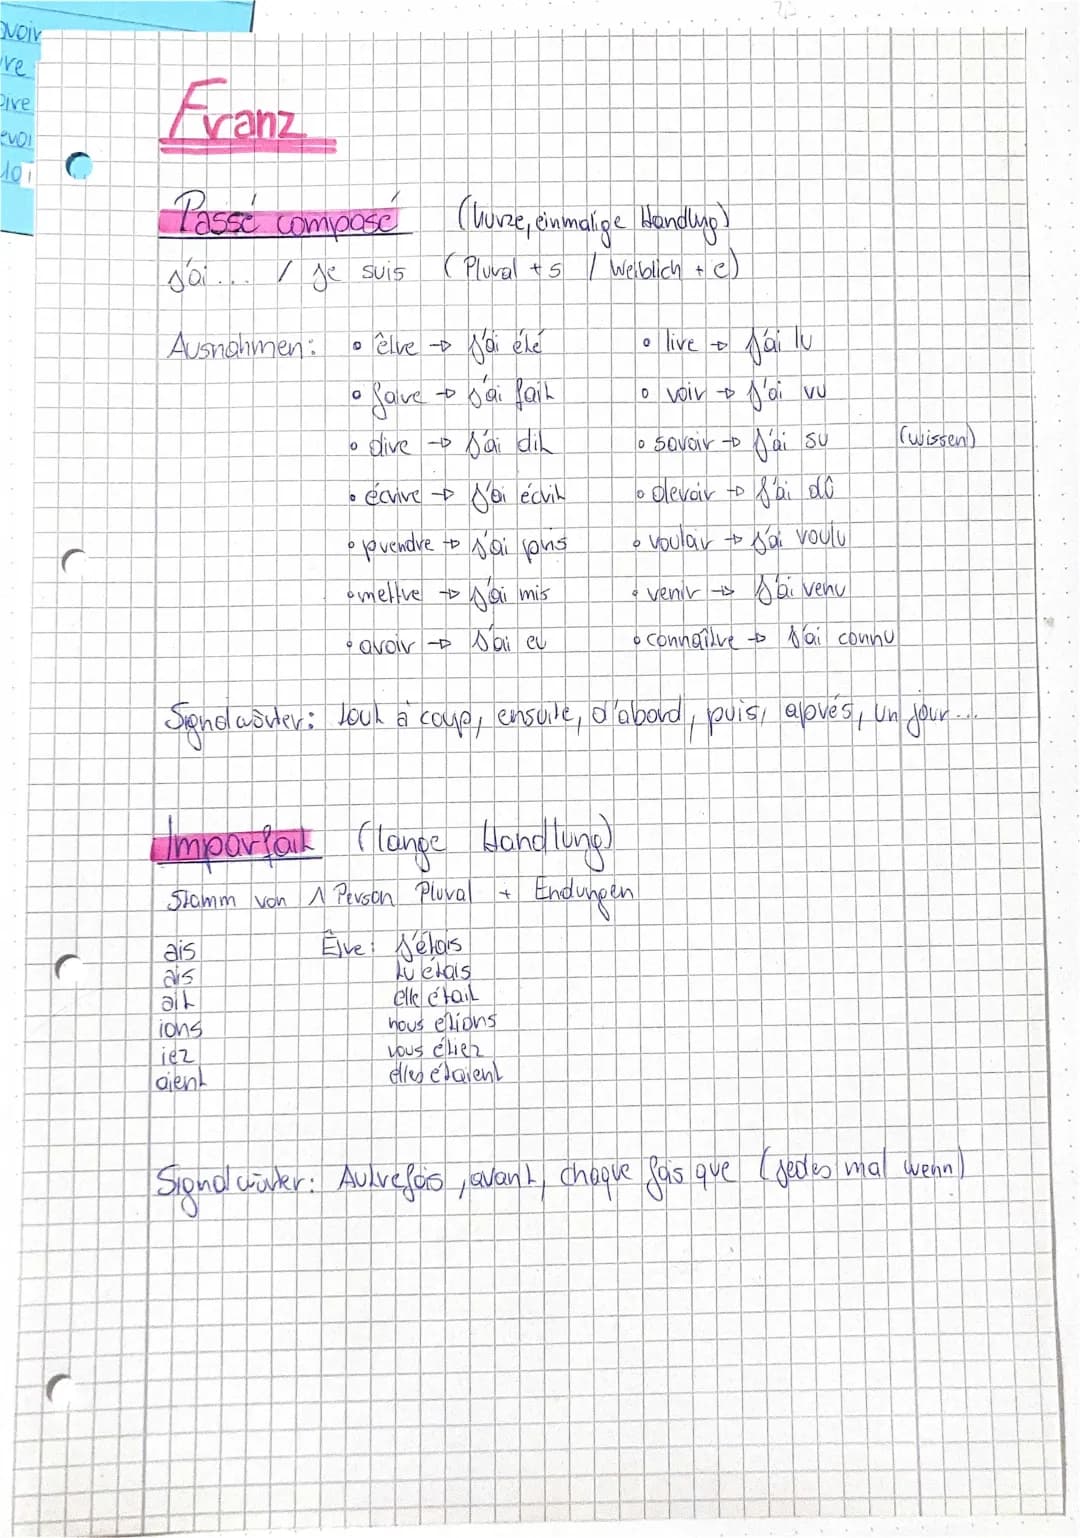 Franz
Passé composé (kurze, einmalige Handlung)
j'ai... / je suis (Plural + s / Weiblich + e)
Ausnahmen: • être → j'ai été • lire → j'ai lu
• faire → j'ai fait • voir → j'ai vu
• dire → j'ai dit • savoir → j'ai su (wissen)
• écrire → j'ai écrit • devoir → j'ai dû
• prendre → j'ai pris • voulair → j'ai voulu
• mettre → j'ai mis • venir → j'ai venu
• avoir → j'ai eu • connaître → j'ai connu
Signalwörter: tout à coup, ensuite, d'abord, puis, aprés, un jour...
Imparfait (lange Handlung)
Stamm von 1 Person Plural + Endungen
ais Être: J'étais
ais tu étais
ait elle était
ions nous etions
iez vous étiez
aient elles étaient
Signalwörter: Autrefois, avant, chaque fois que (jedes mal wenn)